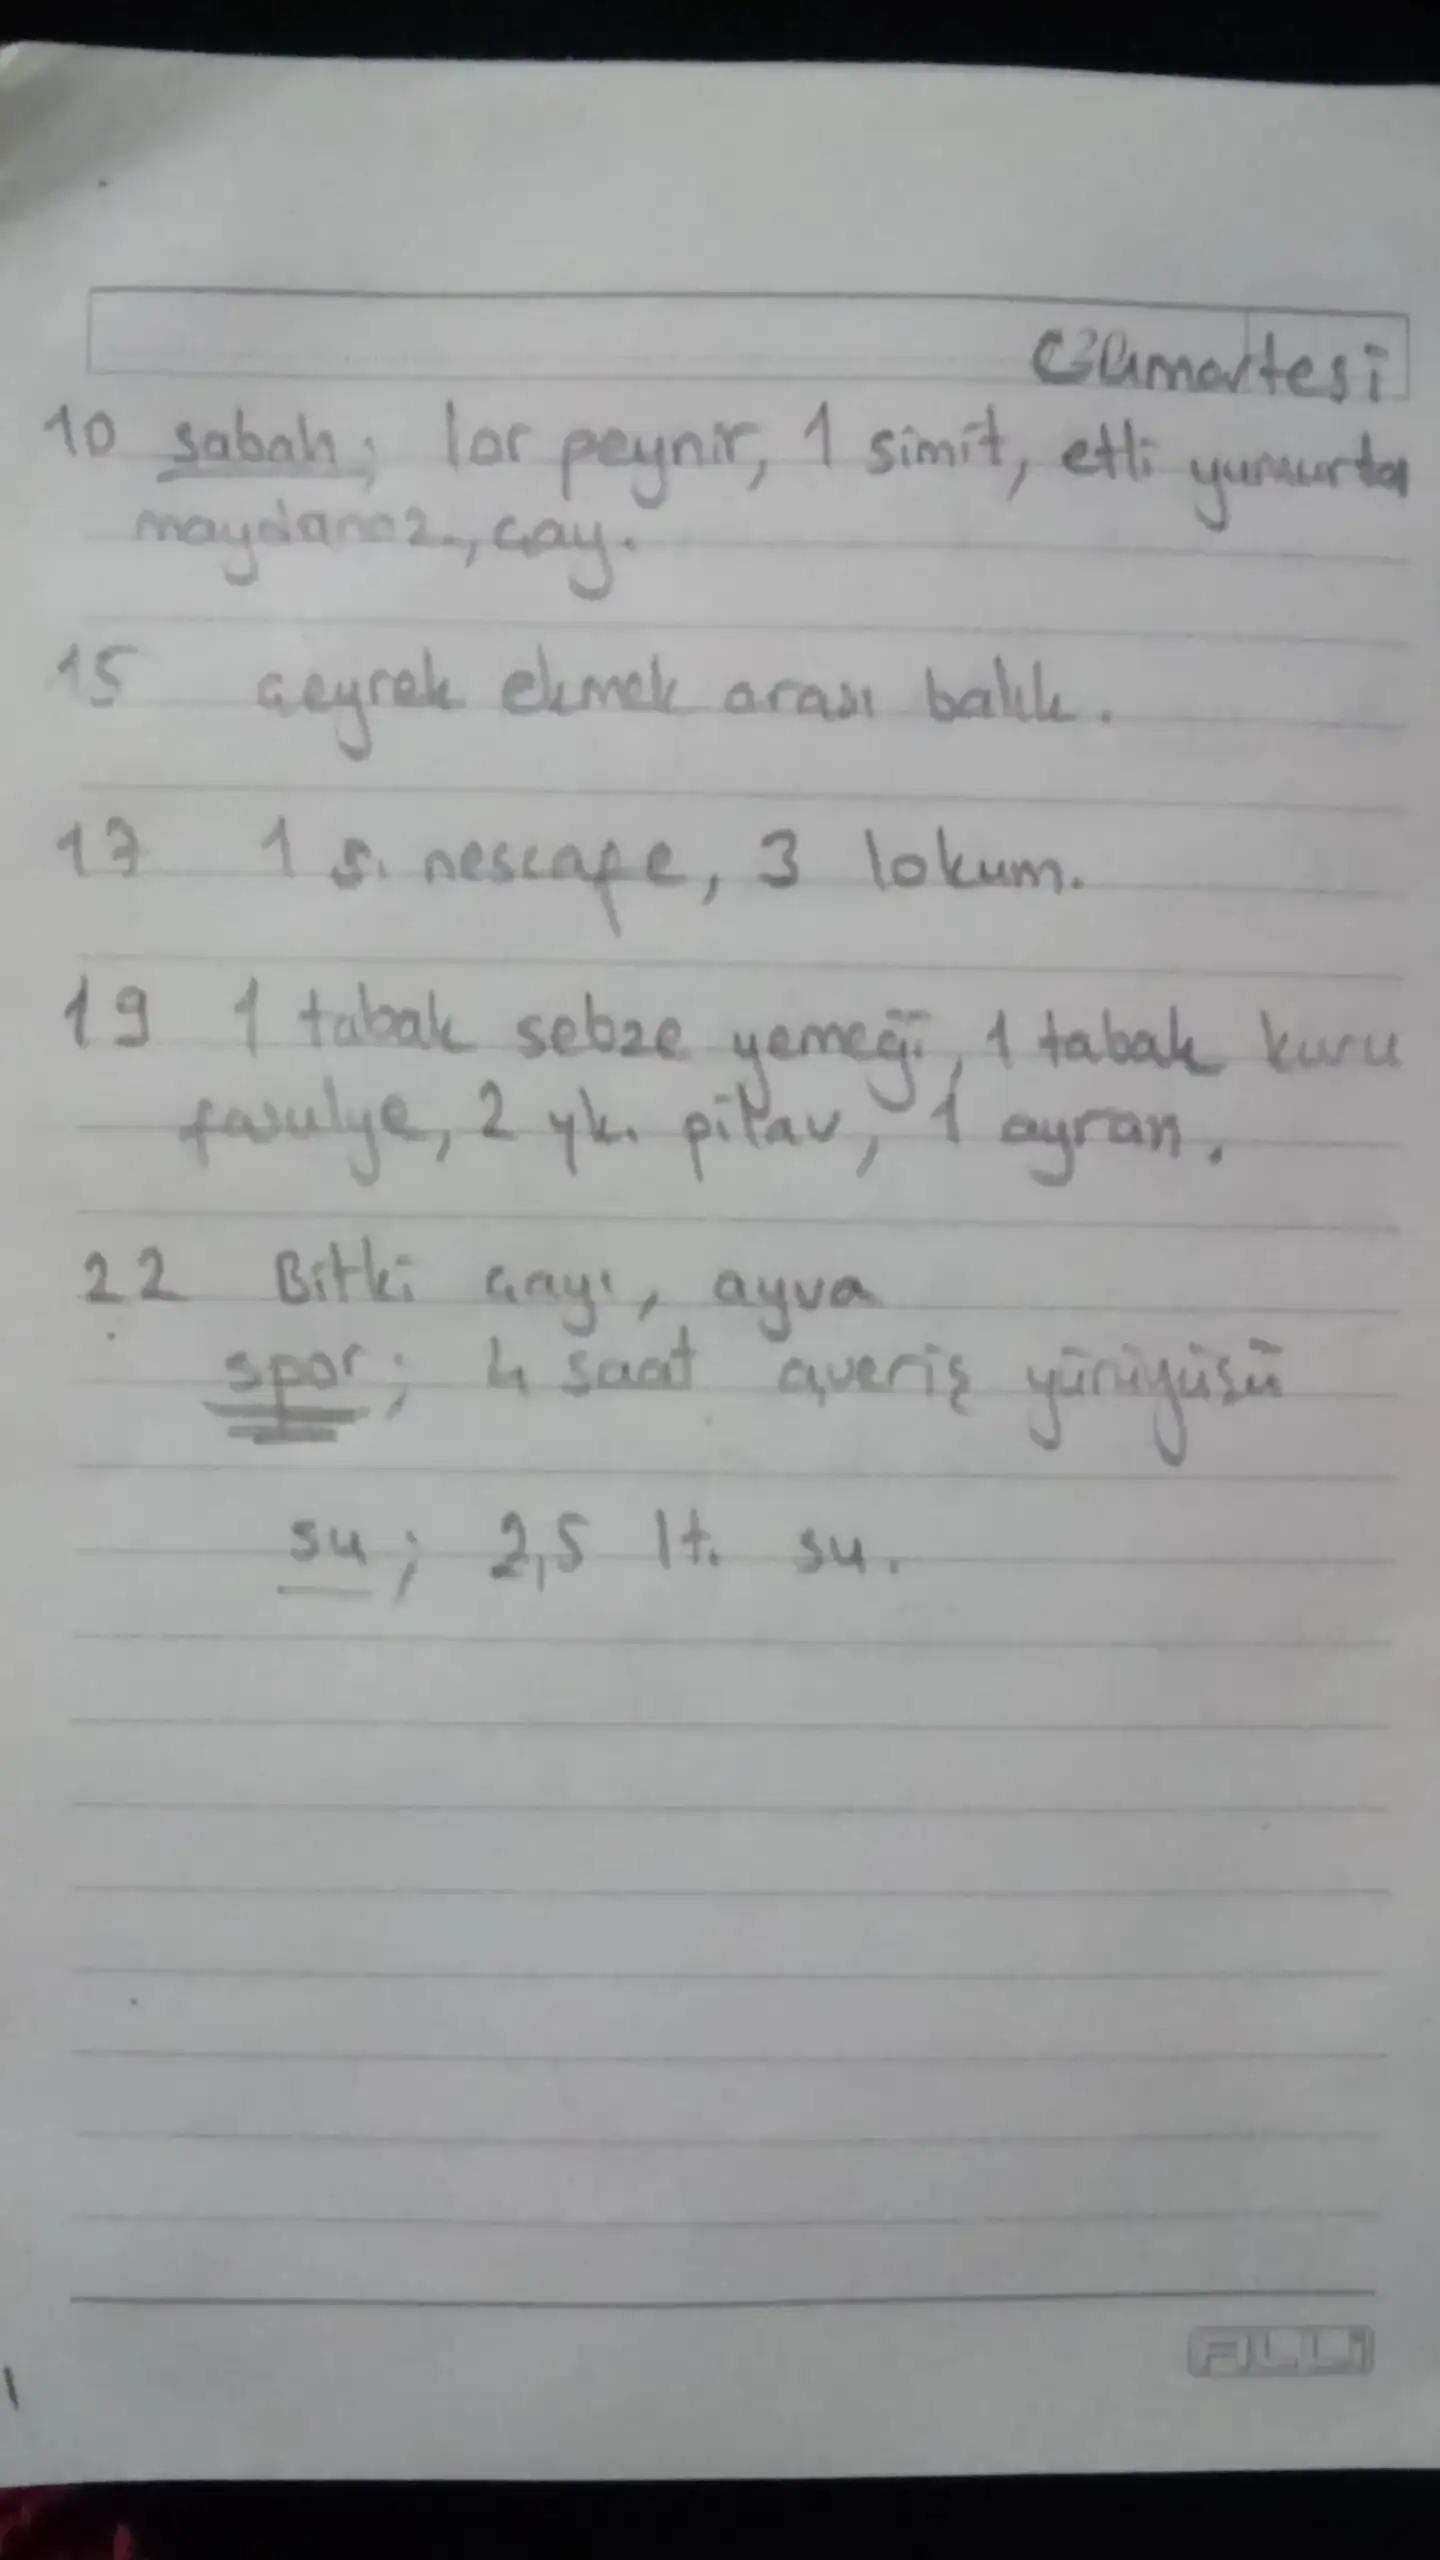 Cumartesi
10 sabah; lor peynir, 1 simit, etli yumurta
maydanoz, çay.
15 çeyrek ekmek arası balık.
17 1 s. nescafe, 3 lokum.
19 1 tabak sebze yemeği, 1 tabak kuru
fasulye, 2 yk. pilav, 1 ayran.
22 Bitki çayı, ayva
spor; 4 saat alveriş yürüyüşü
su; 2,5 lt. su.
ALLi